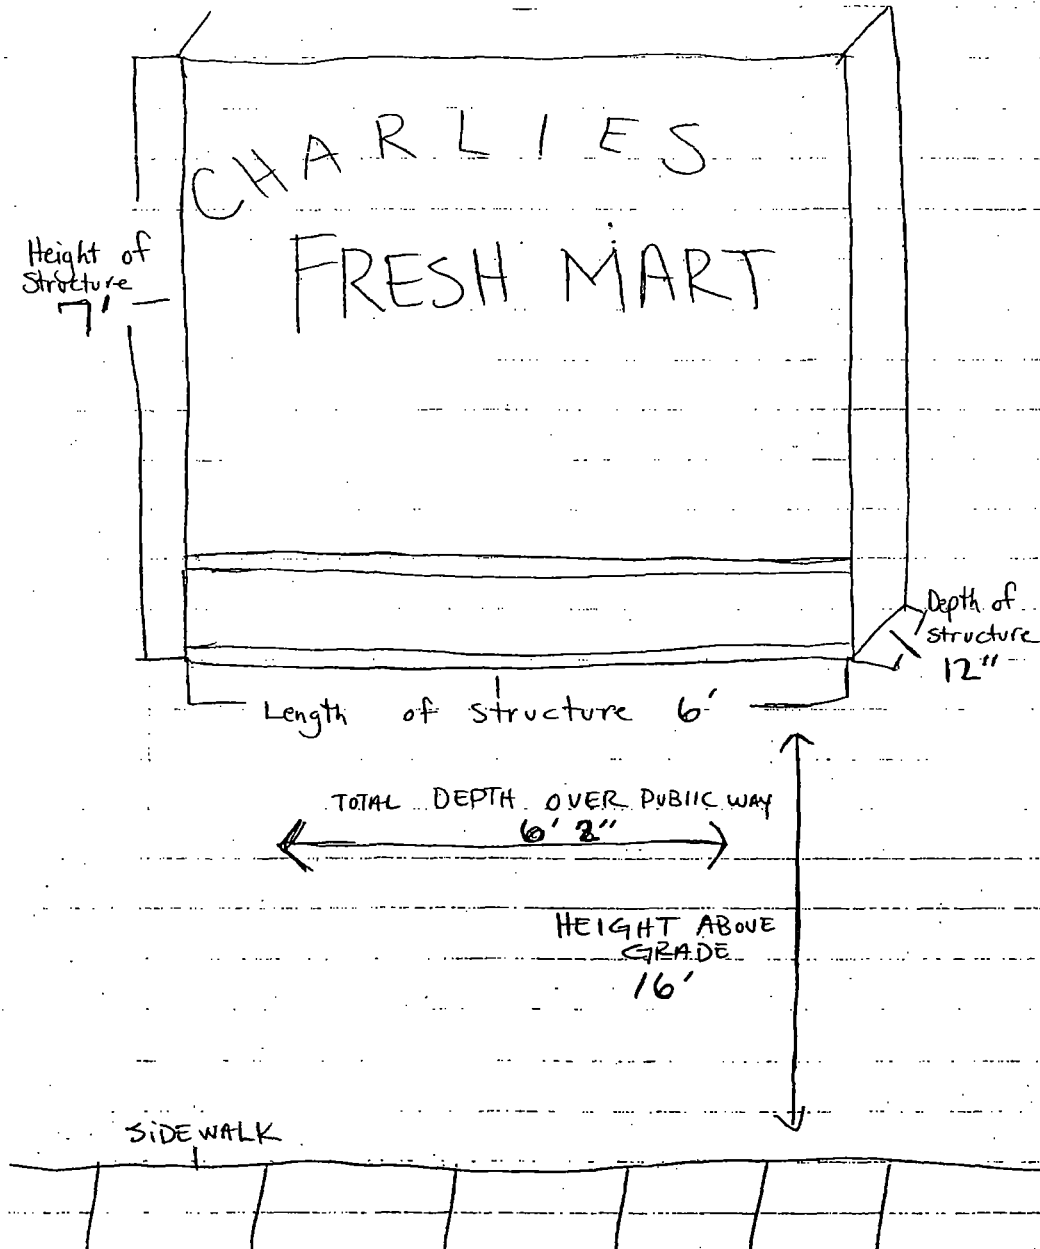 CHARLIES
FRESH MART
Height of
Structure
7'
Depth of
structure
12"
Length of structure 6'
TOTAL DEPTH OVER PUBLIC WAY
6'
HEIGHT ABOVE
GRADE
16'
SIDEWALK